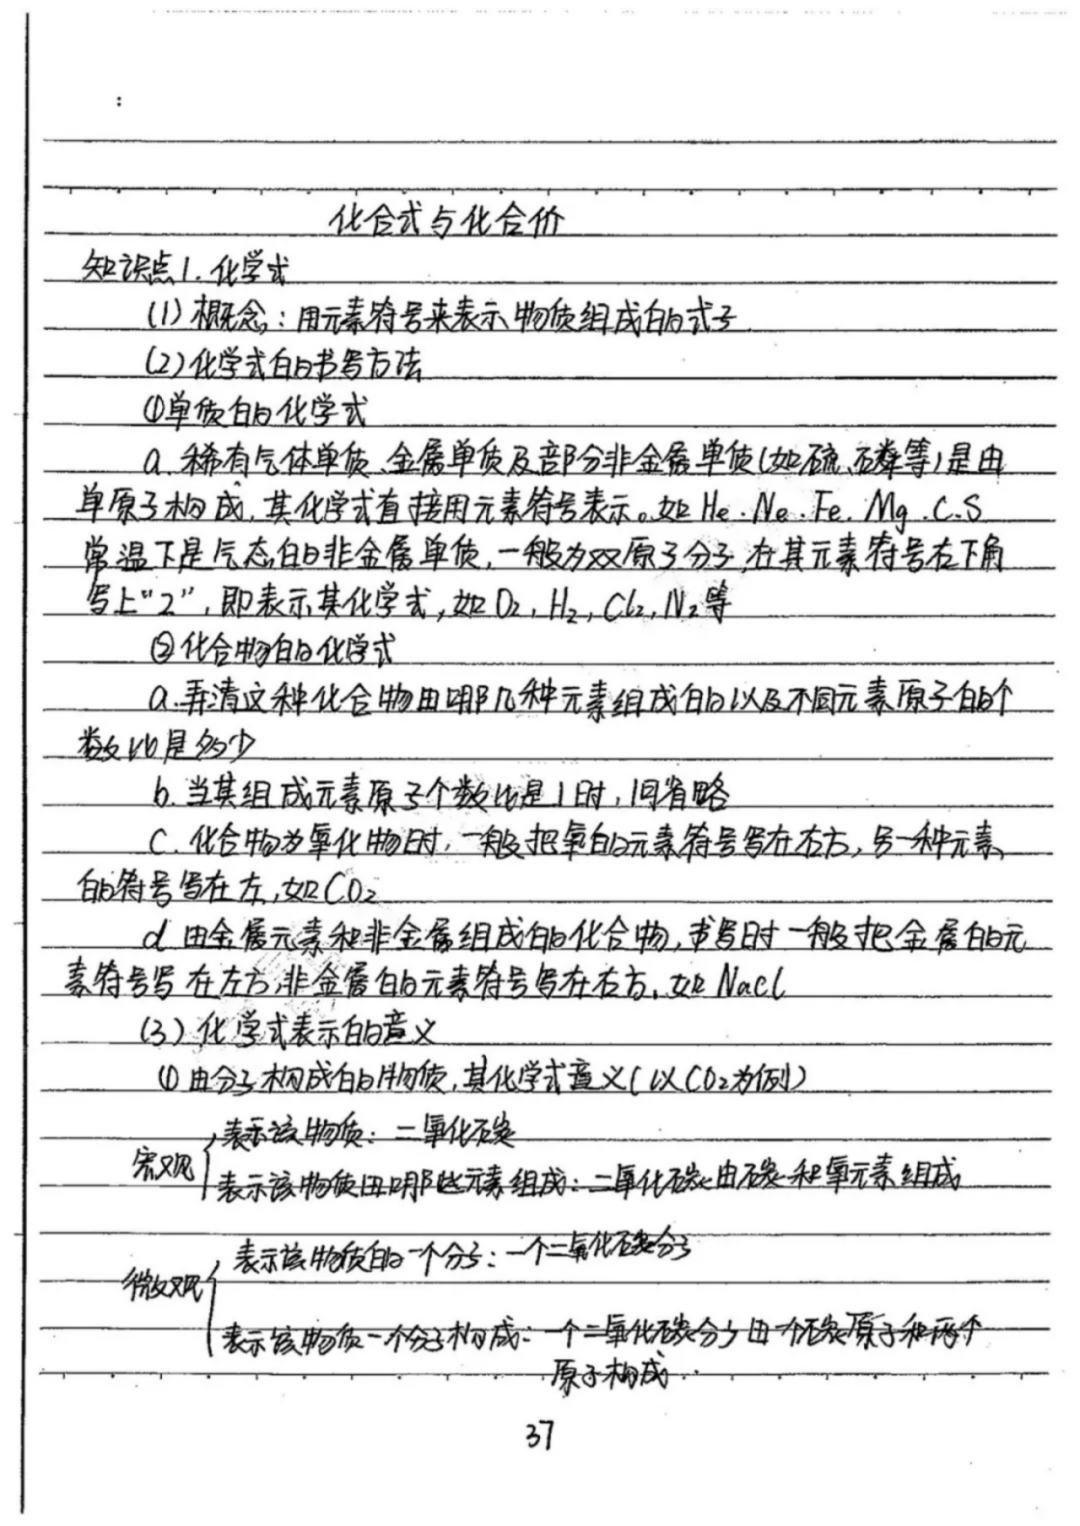 化合式与化合价
知识点1.化学式
(1)概念:用元素符号来表示物质组成的式子
(2)化学式的书写方法
①单质的化学式
a.稀有气体单质、金属单质及部分非金属单质(如硫、磷等)是由
单原子构成,其化学式直接用元素符号表示。如He.Ne.Fe.Mg.C.S
常温下是气态的非金属单质,一般为双原子分子,在其元素符号右下角
写上“2”,即表示其化学式,如O₂,H₂,Cl₂,N₂等
②化合物的化学式
a.弄清这种化合物由哪几种元素组成的以及不同元素原子的个
数比是多少
b.当其组成元素原子个数比是1时,1可省略
C.化合物为氧化物时,一般把氧的元素符号写在右方,另一种元素
的符号写在左,如CO₂
d 由金属元素和非金属组成的化合物,书写时一般把金属的元
素符号写在左方,非金属的元素符号写在右方,如Nacl
(3)化学式表示的意义
①由分子构成的物质,其化学式意义(以CO₂为例)
表示该物质:二氧化碳
宏观
表示该物质由哪些元素组成:二氧化碳由碳和氧元素组成
表示该物质的一个分子:一个二氧化碳分子
微观
表示该物质一个分子构成:一个二氧化碳分子由一个碳原子和两个
原子构成
37